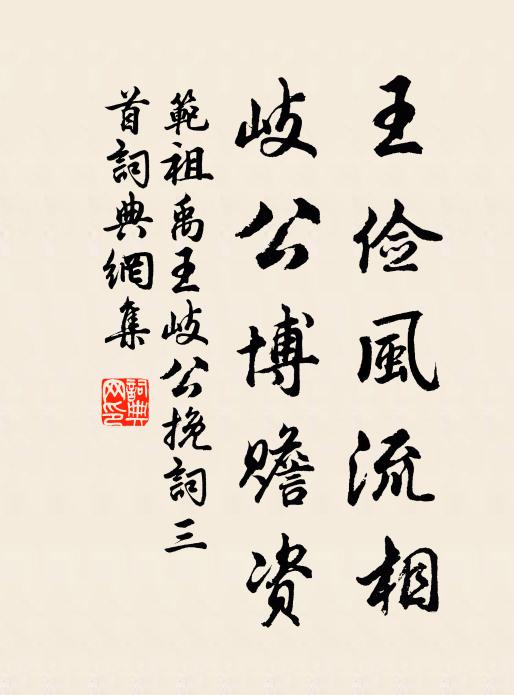 王俭風流相
岐公博赡资
範祖禹王岐公挽詞三
首詞典網集
詞典
网印